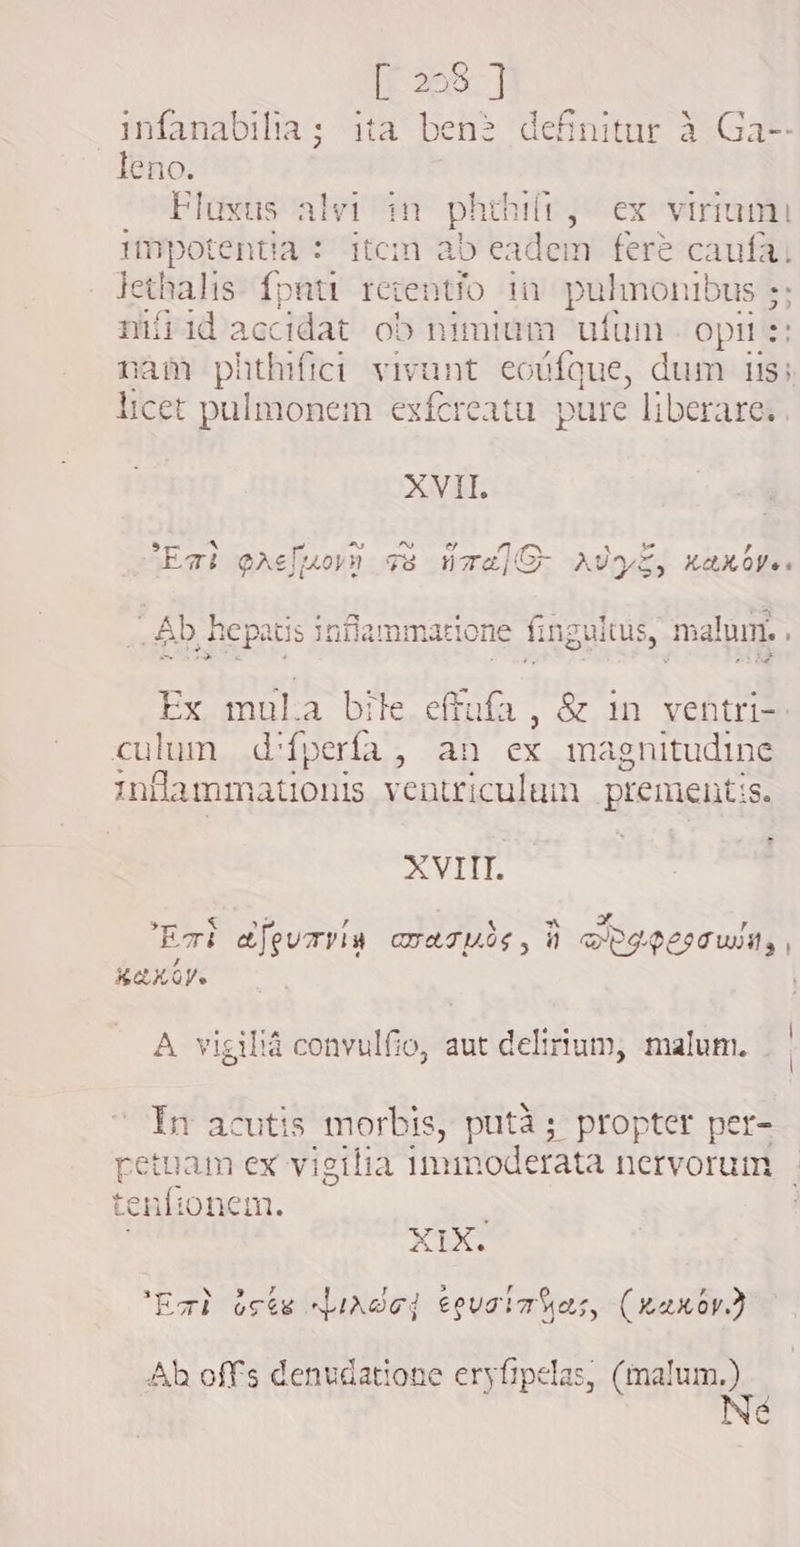 [ 208 ]
infanabilia; ita benè definitur à Ga-
leno.
Fluxus alvi in phthifi, ex virium
impotentia: item ab eadem ferè caufa.
lethalis fputi retentio in pulmonibus;
nifi id accidat ob nimium ufum opii:
nam phthifici vivunt eoúfque, dum iis
licet pulmonem exfcreatu pure liberare.
XVII.
Ἐπὶ φλεγμονῇ τῦ ἥπατ@ λὺγξ, κακόν.
Ab hepatis inflammatione fingultus, malum.
Ex multa bile effufa, & in ventri-
culum difperfa, an ex magnitudine
inflammationis ventriculum prementis.
XVIII.
Ἐπὶ ἀγρυπνίῃ σπασμὸς, ἢ παραφροσύνη,
κακόν.
A vigiliâ convulfio, aut delirium, malum.
In acutis morbis, putà; propter per-
petuam ex vigilia immoderata nervorum
tenfionem.
XIX.
Ἐπὶ ὀστέυ ψιλώσει ἐρυσίπελας, (κακόν.)
Ab offs denudatione eryfipelas, (malum.)
Né